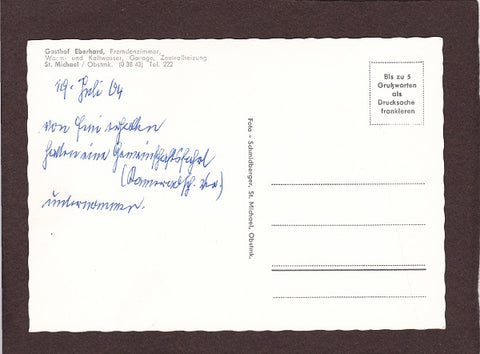 Gasthof Eberhard, Fremdenzimmer,
Warm- und Kaltwasser, Garage, Zentralheizung
St. Michael / Obstmk. (0 38 43) Tel. 222
19. Juli 64
von
hatten eine Gemeinschaftsfahrt
unternommen.
Foto - Schmidberger, St. Michael, Obstmk.
Bis zu 5
Grußworten
als
Drucksache
frankieren